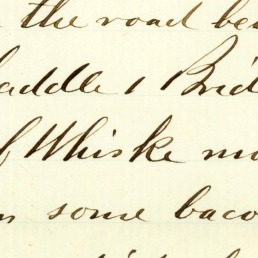 the road be
addle & Brid
f Whiske mo
some baco